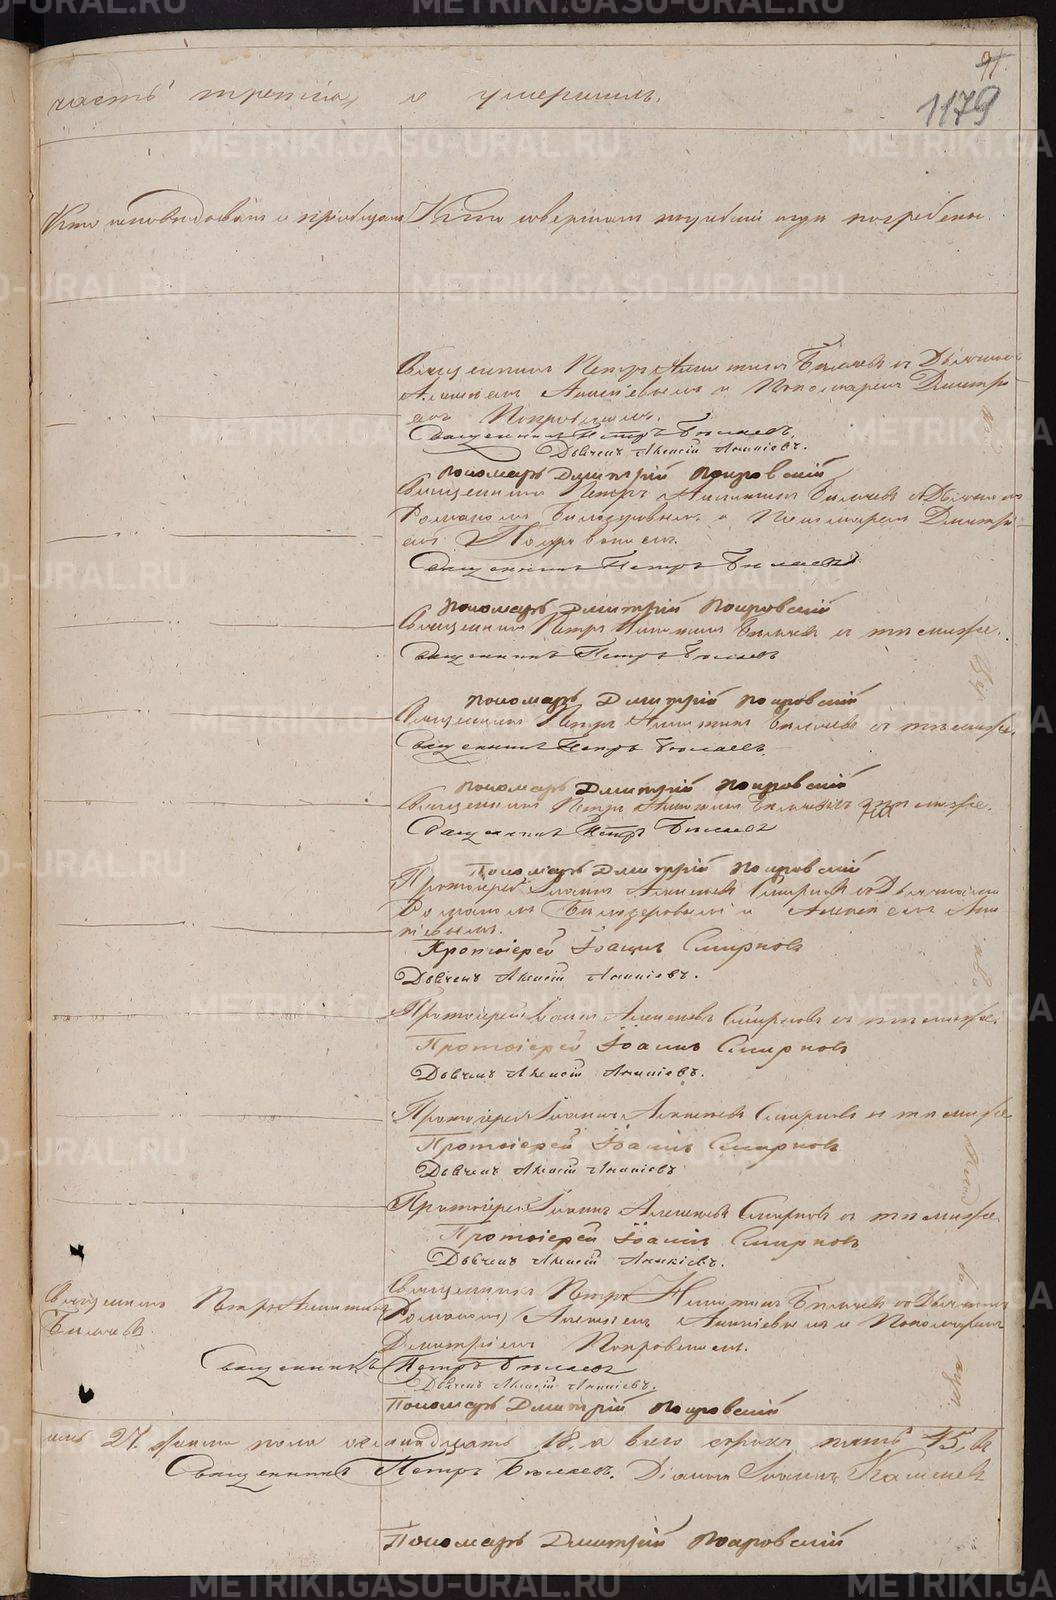 91.
1179
часть третiя, о умершихъ.
Кто исповѣдовалъ и прiобщалъ
Кто совершалъ погребенiе и гдѣ погребены.
Священникъ Петръ Никитинъ Бѣляевъ съ Дьякономъ
Алексѣемъ Ананiевымъ и Пономаремъ Дмитрi-
емъ Покровскимъ.
Священникъ Петръ Бѣляевъ.
Дьячекъ Алексiй Ананiевъ.
Пономарь Дмитрiй Покровскiй
Священникъ Петръ Никитинъ Бѣляевъ съ Дьячкомъ
Романомъ и Пономаремъ Дмитрi-
емъ Покровскимъ.
Священникъ Петръ Бѣляевъ
Пономарь Дмитрiй Покровскiй
Священникъ Петръ Никитинъ Бѣляевъ съ тѣмиже.
Священникъ Петръ Бѣляевъ
Пономарь Дмитрiй Покровскiй
Священникъ Петръ Никитинъ Бѣляевъ съ тѣмиже.
Священникъ Петръ Бѣляевъ.
Пономарь Дмитрiй Покровскiй
Священникъ Петръ Никитинъ Бѣляевъ съ тѣмиже.
Священникъ Петръ Бѣляевъ
Пономарь Дмитрiй Покровскiй
Протоiерей Iоаннъ Алексѣевъ Смирновъ съ Дьячками
Романомъ и Алексѣемъ Ана-
нiевымъ.
Протоiерей Iоаннъ Смирновъ
Дьячекъ Алексiй Ананiевъ.
Протоiерей Iоаннъ Алексѣевъ Смирновъ съ тѣмиже.
Протоiерей Iоаннъ Смирновъ
Дьячекъ Алексiй Ананiевъ.
Протоiерей Iоаннъ Алексѣевъ Смирновъ съ тѣмиже
Протоiерей Iоаннъ Смирновъ
Дьячекъ Алексiй Ананiевъ
Протоiерей Iоаннъ Алексѣевъ Смирновъ съ тѣмиже.
Протоiерей Iоаннъ Смирновъ
Дьячекъ Алексiй Ананiевъ.
Священникъ Петръ Никитинъ
Бѣляевъ.
Священникъ Петръ Никитинъ Бѣляевъ съ Дьячками
Романомъ, Алексѣемъ Ананiевымъ и Пономаремъ
Дмитрiемъ Покровскимъ.
Священникъ Петръ Бѣляевъ
Дьячекъ Алексiй Ананiевъ.
Пономарь Дмитрiй Покровскiй
27. женска пола осмнадцать 18. а всего сорокъ пять 45.
Священникъ Петръ Бѣляевъ. Дiаконъ Iоаннъ
Пономарь Дмитрiй Покровскiй
METRIKI.GASO-URAL.RU